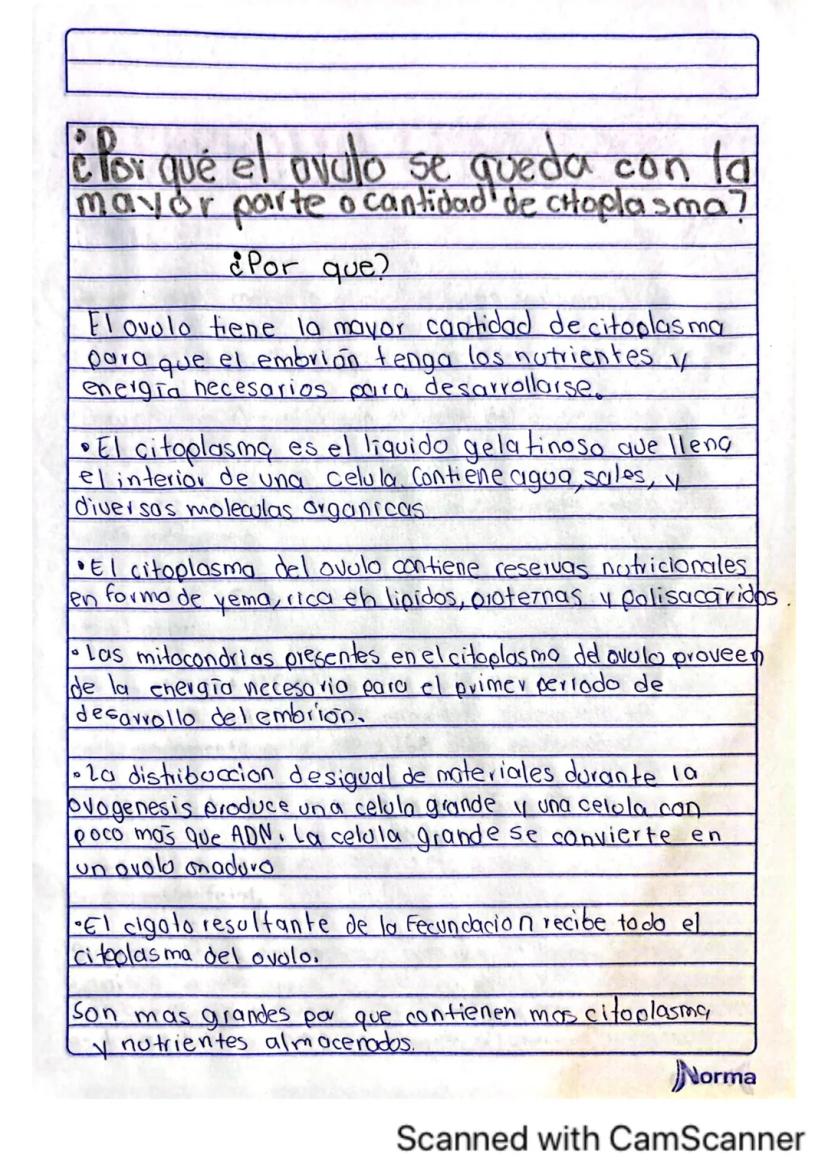 ¿Por qué el ovulo se queda con la
mayor parte o cantidad de citoplasma?
¿Por que?
El ovulo tiene la mayor cantidad de citoplasma
para que el embrión tenga los nutrientes y
energía necesarios para desarrollarse.
• El citoplasma es el liquido gelatinoso que llena
el interior de una celula. Contiene agua, sales, y
diversas moleculas organicas
• El citoplasma del ovulo contiene reservas nutricionales
en forma de yema, rica en lipidos, proteinas y polisacáridos.
• Las mitocondrias presentes en el citoplasma del ovulo proveen
de la energía necesaria para el primer periodo de
desarrollo del embrión.
• La distribuccion desigual de materiales durante la
ovogenesis produce una celula grande y una celula con
poco más que ADN. La celula grande se convierte en
un ovulo maduro
• El cigoto resultante de la Fecundacion recibe todo el
citoplasma del ovolo.
Son mas grandes por que contienen mas citoplasma,
y nutrientes almacenados.
Norma
Scanned with CamScanner